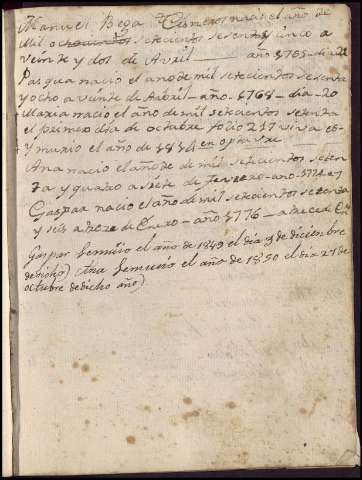 Manuel Bega Cisneros nacio el año de
mil ochocientos setecientos sesenta y cinco a
veinte y dos de Avril — año 1765 — dia 22
Pasqua nacio el año de mil setecientos sesenta
y ocho a veinte de Aabril — año — 1768 — dia — 20
Maria nacio el año de mil setecientos setenta
el primeo dia de octubre folio 217
y murio el año de 1834 en
Ana nacio el año de mil setecientos seten
ta y quatro a siete de febrero — ano — 1774 — a 7
Gaspar nacio el año de mil setecientos setenta
y seis a treze de Enero — año 1776 — a trece de En
Gaspar Semurio el año de 1849 el dia 9 de diciembre
de dicho) Ana Semurió el año de 1850 el dia 27 de
octubre de dicho año)